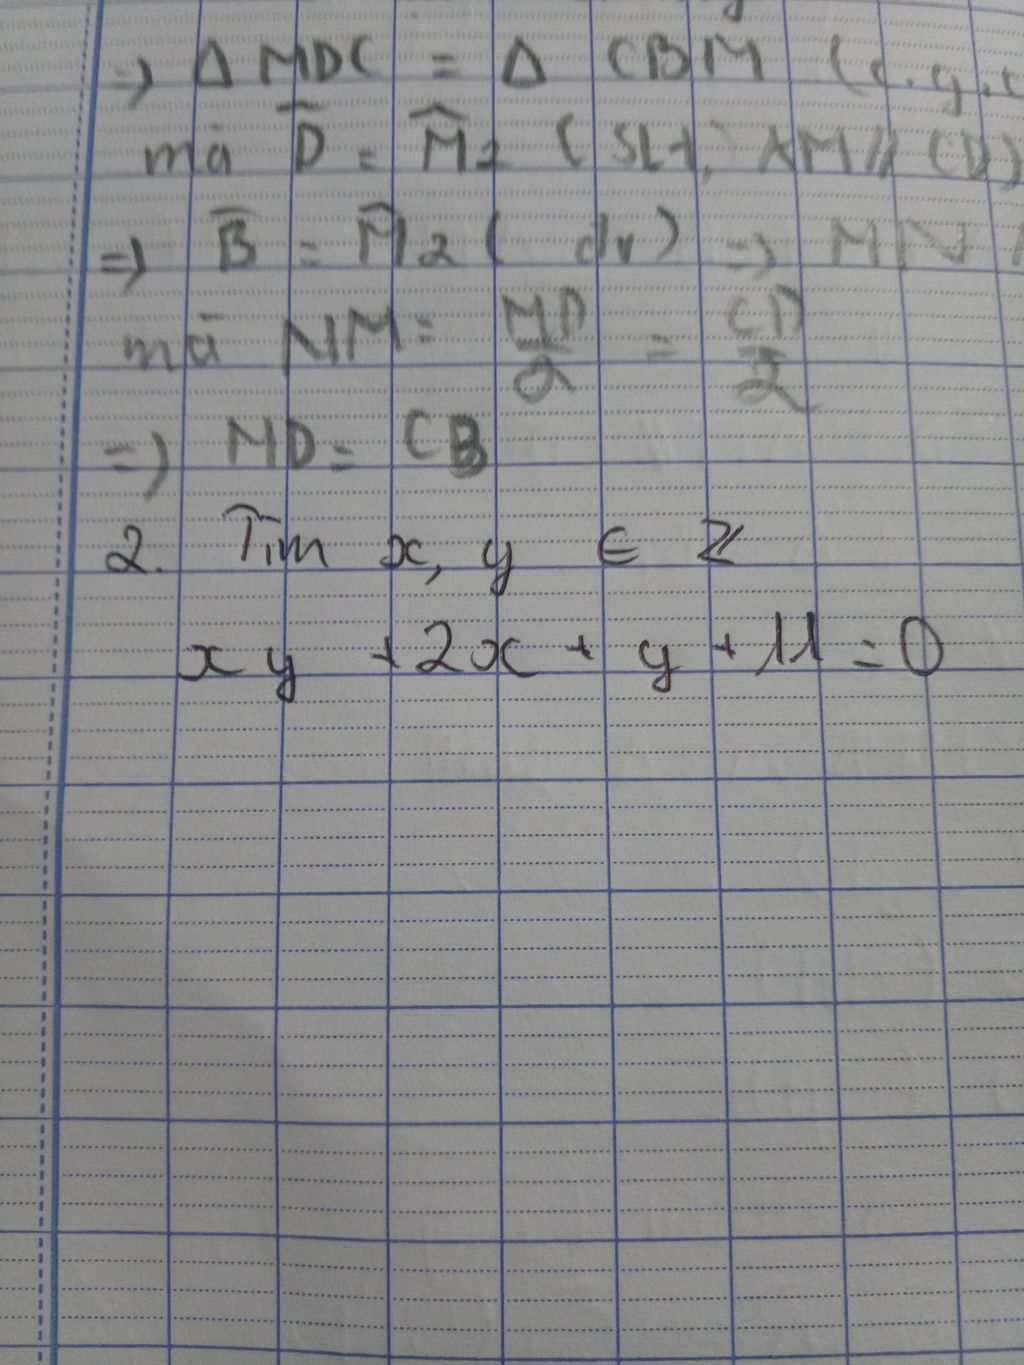 => Δ MDC = Δ CBM (c.g.c
mà D̂ = M̂2 (SLT, AM // CD)
=> B̂ = M̂2 ( đv) => MN
mà NM = MD/2 = CD/2
=> MD = CB
2. Tìm x, y ∈ Z
xy + 2x + y + 11 = 0